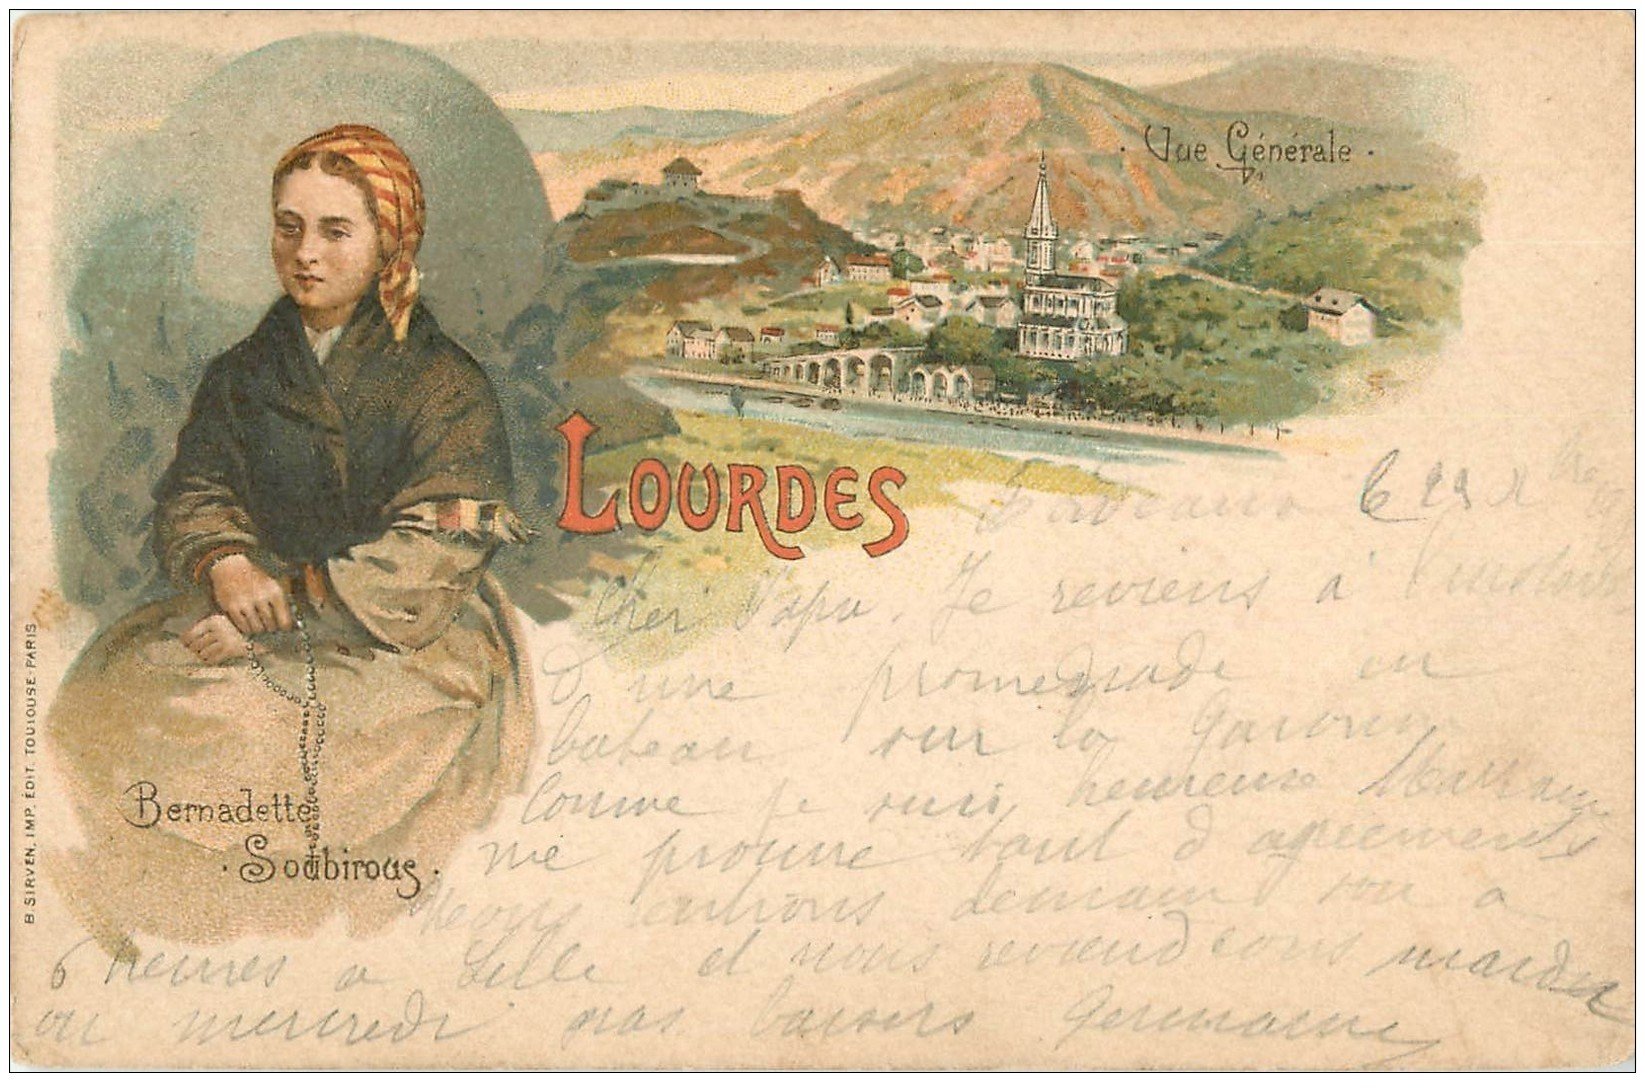 · Vue Générale ·
LOURDES
le 29 Xbre
Cher Papa. Je reviens à l'instant
D'une promenade en
bateau sur la Garonne
Comme je suis heureuse
me procure tant d'agréments
Nous partons demain soir à
6 heures a Lille et nous reviendrons mardi
ou mercredi gros baisers Germaine
Bernadette
· Soubirous ·
B. SIRVEN, IMP. ÉDIT. TOULOUSE-PARIS